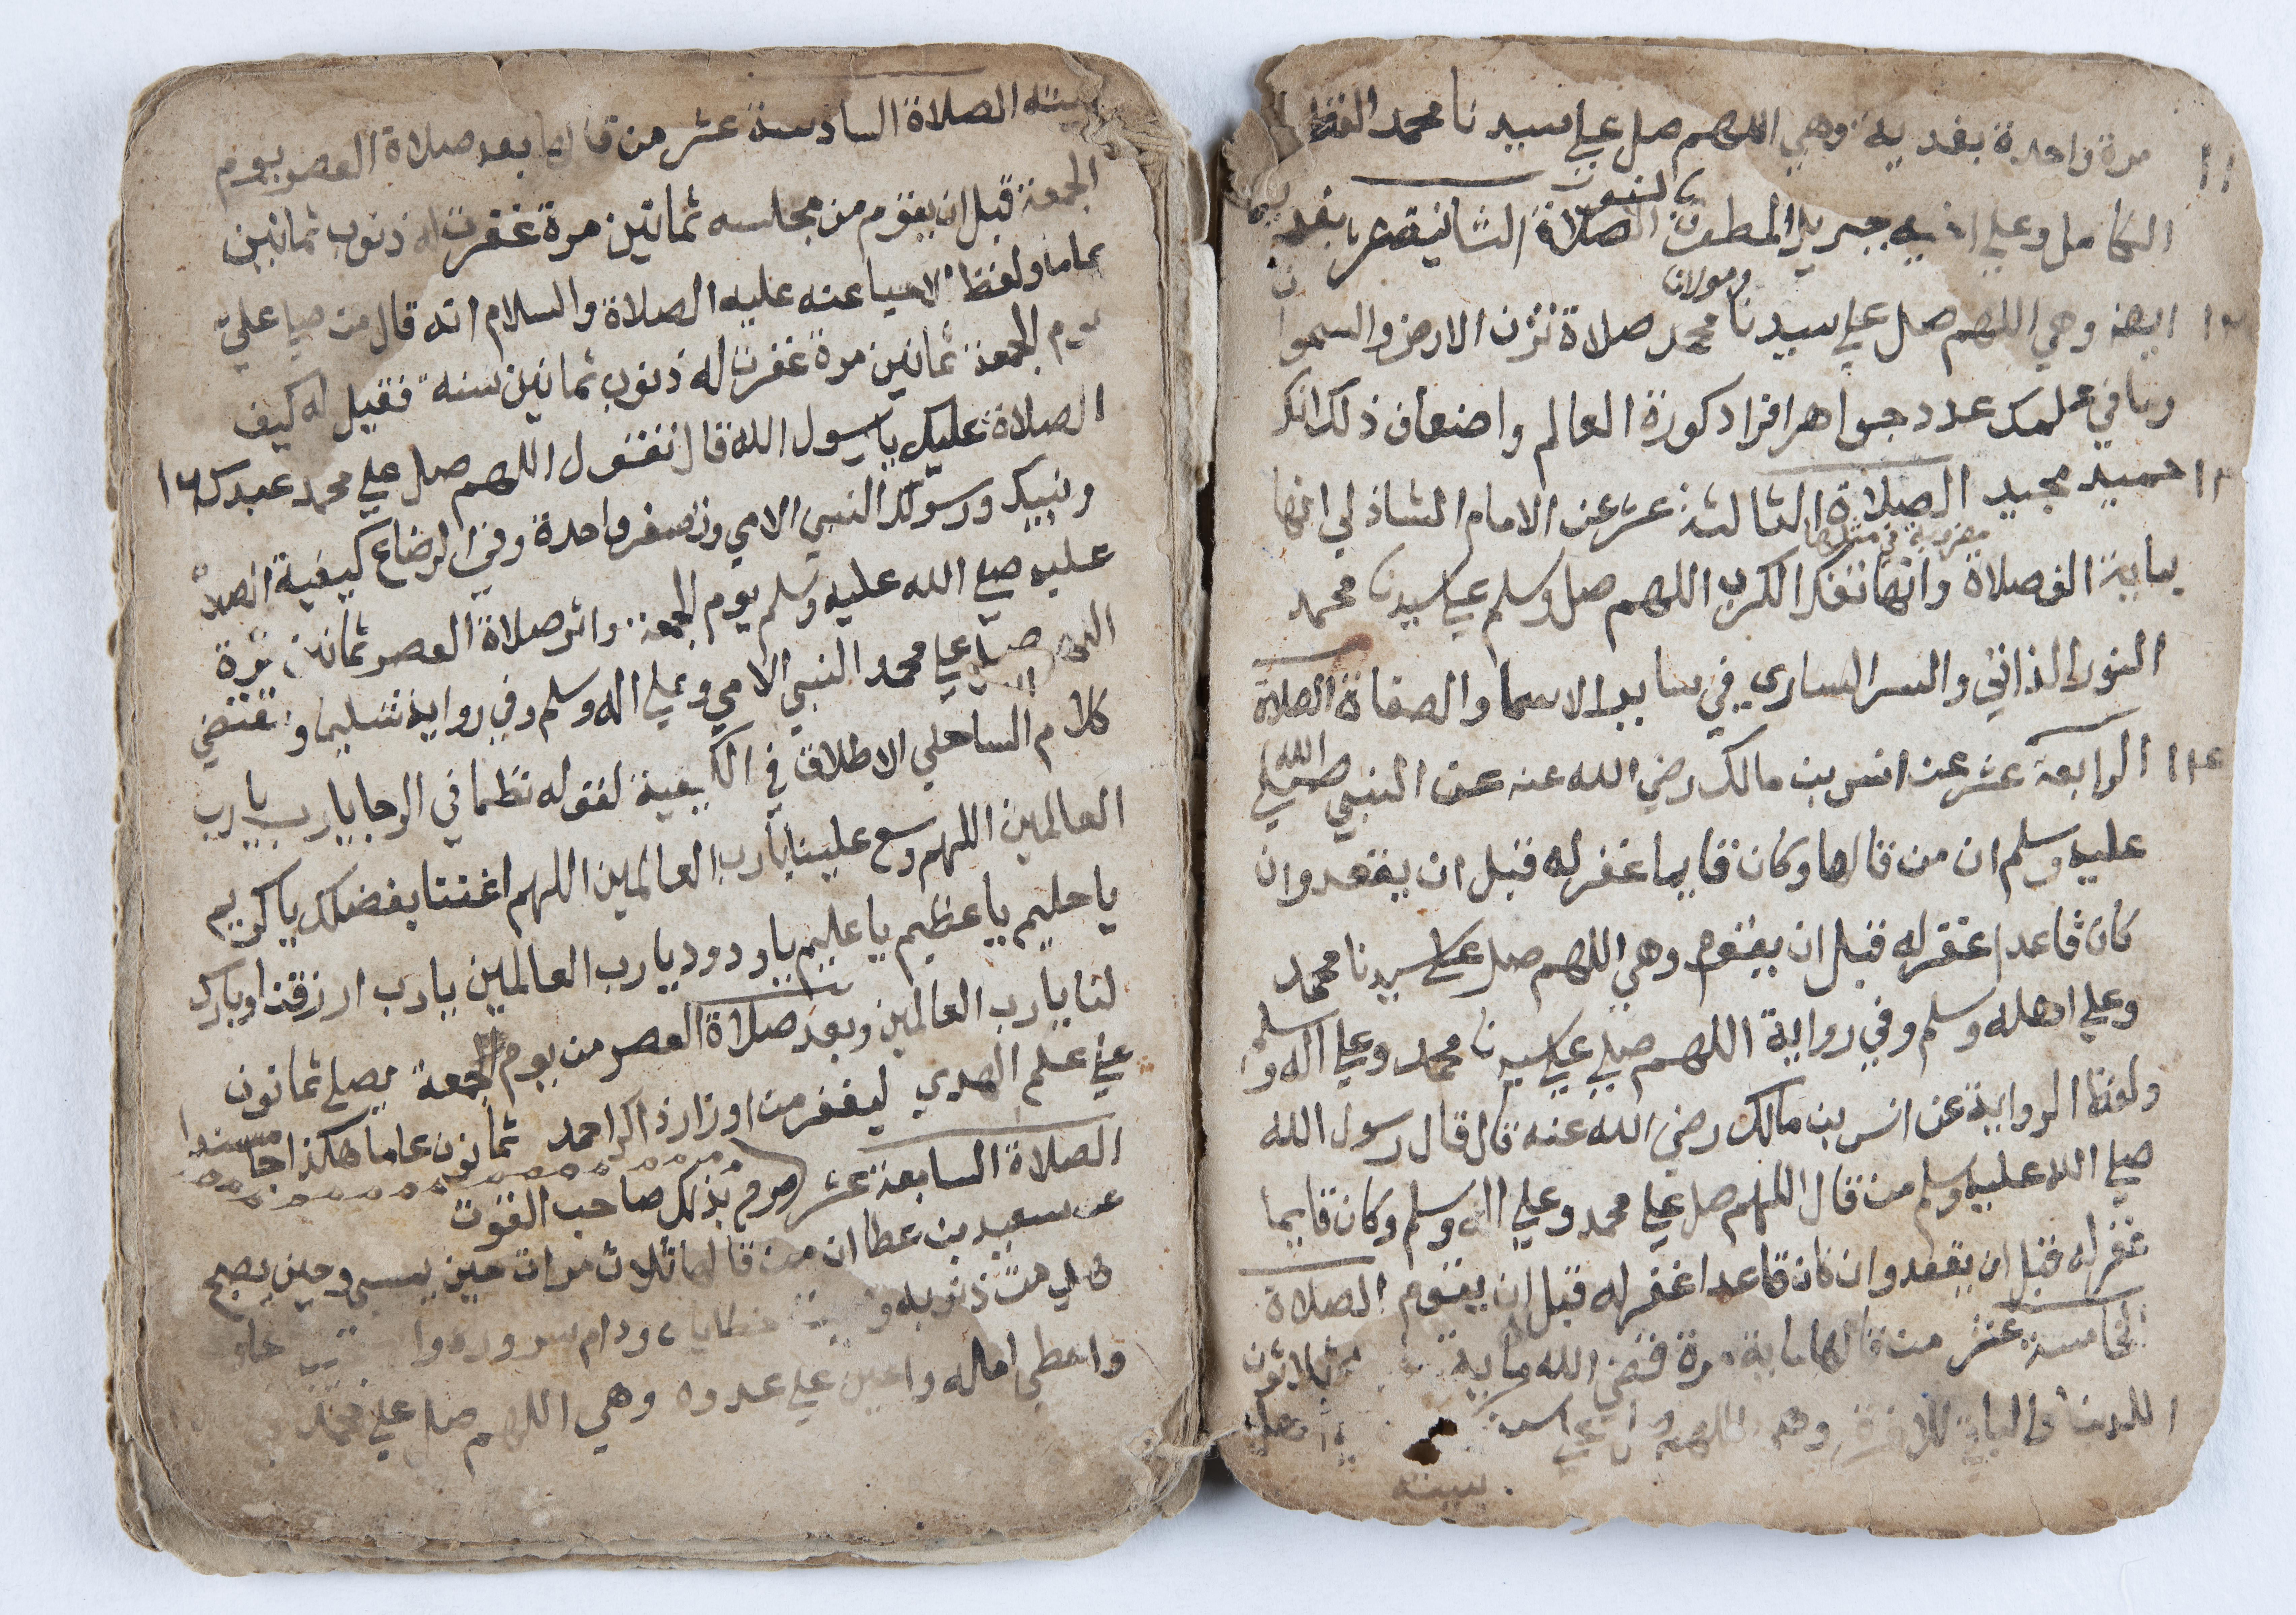 مرة واحدة بفديه وهي اللهم صل علي سيدنا محمد
الكامل وعلي اخيه جبريل المطوق بالنور الصلاة الثانية عشر بفديه
ايضا وهي اللهم صل علي سيدنا ومولانا محمد صلاة تزن الارض والسموات
وما في علمك عدد جواهر افراد كورة العالم واضعاف ذلك انك
حميد مجيد الصلاة الثالثة عشر عن الامام الشاذلي انها
بماية الف صلاة وانها تفك الكرب اللهم صل وسلم علي سيدنا محمد
النور الذاتي والسر الساري في ساير الاسما والصفاة الصلاة
الرابعة عشر عن انس بن مالك رضي الله عنه عن النبي صلي الله
عليه وسلم ان من قالها وكان قايما غفر له قبل ان يقعد وان
كان قاعدا غفر له قبل ان يقوم وهي اللهم صل علي سيدنا محمد
وعلي اهله وسلم وفي رواية اللهم صلي علي سيدنا محمد وعلي اله وسلم
ولفظ الرواية عن انس بن مالك رضي الله عنه قال قال رسول الله
صلي الله عليه وسلم من قال اللهم صل علي محمد وعلي اله وسلم وكان قايما
غفر له قبل ان يقعد وان كان قاعدا غفر له قبل ان يقوم الصلاة
الخامسة عشر من قالها ماية مرة قضي الله ماية ثلاثون
للدنيا والباقي للاخرة وهي اللهم صل علي
بيته
بيته الصلاة السادسة عشر من قالها بعد صلاة العصر يوم
الجمعة قبل ان يقوم من مجلسه ثمانين مرة غفرت له ذنوب ثمانين
عاما ولفظ الاحيا عنه عليه الصلاة والسلام انه قال من صلي علي
يوم الجمعة ثمانين مرة غفرت له ذنوب ثمانين سنة فقيل له كيف
الصلاة عليك يا رسول الله قال تقول اللهم صل علي محمد عبدك ١٦
ونبيك ورسولك النبي الامي وتصغر واحدة وفي الرضاع كيفية الصلاة
عليه صلي الله عليه وسلم يوم الجمعة واثر صلاة العصر ثمانين مرة
اللهم صل علي محمد النبي الامي وعلي اله وسلم وفي رواية تسليما وتقتضي
كلام الساحلي الاطلاق في الكيفية لقوله نظما في الرجا يارب يا رب
العالمين اللهم وسع علينا يا رب العالمين اللهم اغثنا بفضلك يا كريم
يا حليم يا عظيم يا عليم يا ودود يا رب العالمين يا رب ارزقنا وبارك
لنا يا رب العالمين وبعد صلاة العصر من يوم الجمعة يصلي ثمانون
علي علم الهدي ليغفر من اوزار ذاكر احمد ثمانون عاما هكذا جا مسندا
الصلاة السابعة عشر صرح بذلك صاحب القوت
عن سعيد بن عطا ان من قالها ثلاث مرات حين يمسي وحين يصبح
ذنوبه خطاياه ودام سروره
واعطي اماله واعين علي عدوه وهي اللهم صل علي محمد